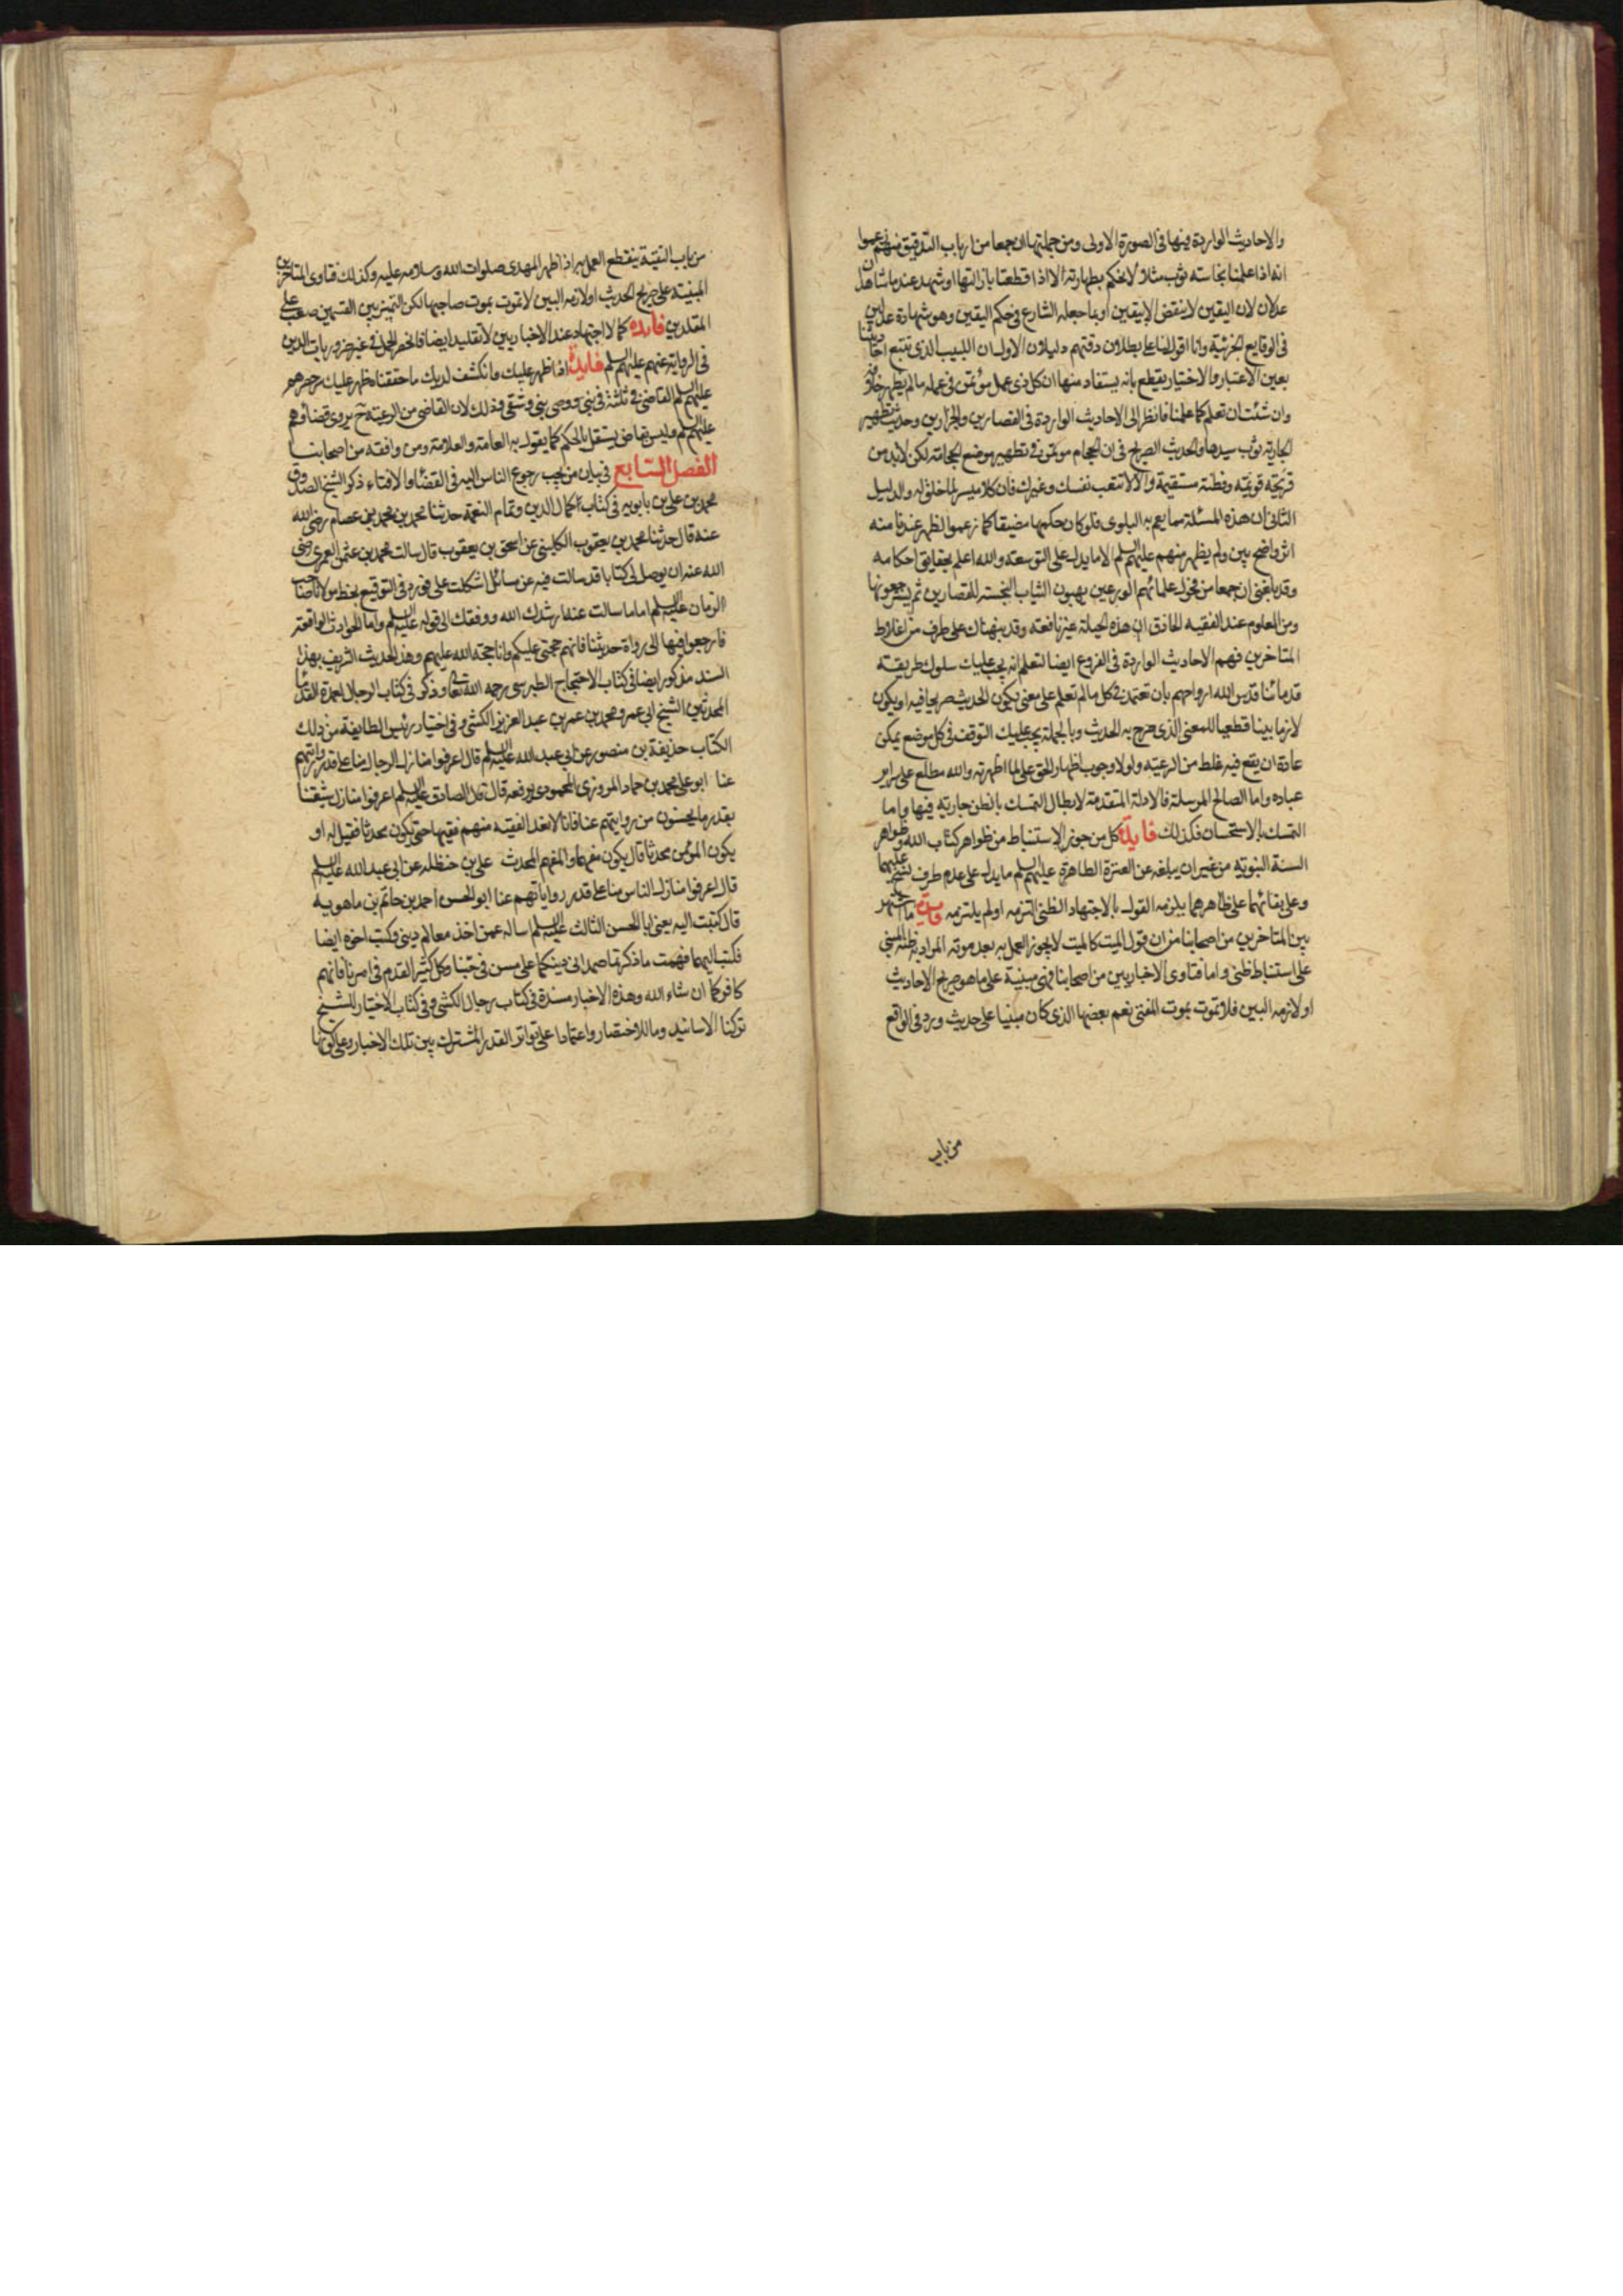 والاحاديث الواردة فيها فى الصورة الاولى ومن جملتها ان جمعا من ارباب التدقيق منهم زعموا
انه اذا علمنا بنجاسته ثوب مثلا لانحكم بطهارته الا اذا قطعنا بازالتها او شهد عندنا شاهدان
عدلان لان اليقين لاينقض الا بيقين او بما جعله الشارع فى حكم اليقين وهو شهادة عدلين
فى الوقايع الجزئية وانا اقول لنا على بطلان دقتهم دليلان الاول ان اللبيب الذى تتبع احاديثنا
بعين الاعتبار والاختبار يقطع بانه يستفاد منها ان كل ذى عمل مؤتمن فى عمله مالم يظهر خلافه
وان شئت ان تعلم كما علمنا فانظر الى الاحاديث الواردة فى القصارين والجزارين وحديث تطهير
الجارية ثوب سيدها والحديث الصريح فى ان الحجام موتمن فى تطهير موضع الحجامة لكن لابد من
قريحة قويمة وفطنة مستقيمة والا لاتتعب نفسك وغيرك فان كلا ميسر لما خلق له والدليل
الثانى ان هذه المسئلة مما يعم به البلوى فلو كان حكمها مضيقا كما زعموا لظهر عندنا منه
اثر واضح بين ولم يظهر منهم عليهم السلم الا ما يدل على التوسعة والله اعلم بحقايق احكامه
وقد بلغنى ان جمعا من فحول علمائهم الورعين يهبون الثياب النجسة للقصارين ثم يسترجعونها
ومن المعلوم عند الفقيه الحاذق ان هذه الحيلة غير نافعة وقد نبهناك على طرف من اغلاط
المتاخرين فهم الاحاديث الواردة فى الفروع ايضا لتعلم انه يجب عليك سلوك طريقة
قدمائنا قدس الله ارواحهم بان تعتمد فى كل مالم تعلم على معنى يكون الحديث صريحا فيه او يكون
لازما بينا قطعيا للمعنى الذى صرح به الحديث وبالجملة يجب عليك التوقف فى كل موضع يمكن
عادة ان يقع فيه غلط من الرعية ولولا وجوب اظهار الحق على لما اظهرته والله مطلع على سراير
عباده واما المصالح المرسلة فالادلة المتقدمة لابطال التمسك بالظن جارية فيها واما
التمسك بالاستحسان فكذلك فايدة كل من جوز الاستنباط من ظواهر كتاب الله وظواهر
السنة النبوية من غير ان يبلغه عن العترة الطاهرة عليهم السلم ما يدل على عدم طرف نسخ عليهما
وعلى بقائهما على ظاهرهما يلزمه القول بالاجتهاد الظنى التزمه اولم يلتزمه فايدة ما اشتهر
بين المتاخرين من اصحابنا من ان قول الميت كالميت لايجوز العمل به بعد موته المراد به ظنه المبنى
على استنباط ظنى واما فتاوى الاخباريين من اصحابنا فهى مبنية على ما هو صريح الاحاديث
او لازمه البين فلا تموت بموت المفتى نعم بعضها الذى كان مبنيا على حديث ورد فى الواقع
من باب
من باب التقية ينقطع العمل به اذا ظهر المهدى صلوات الله وسلامه عليه وكذلك فتاوى المتاخرين
المبنية على صريح الحديث او لازمه البين لاتموت بموت صاحبها لكن التميز بين القسمين صعب على
المقلدين فايدة كما لا اجتهاد عند الاخباريين لا تقليد ايضا فانحصر العمل فى غير ضروريات الدين
فى الرواية عنهم عليهم السلم فايدة اذا ظهر عليك وانكشف لديك ما حققناه ظهر عليك سر حصرهم
عليهم السلم القاضى فى ثلثة فى نبى ووصى نبى وشقى وذلك لان القاضى من الرعية ح يروى قضاؤهم
عليهم السلم وليس بقاض يستقل بالحكم كما يقول به العامة والعلامة ومن وافقه من اصحابنا
الفصل السابع فى بيان من يجب رجوع الناس اليه فى القضاء والافتاء ذكر الشيخ الصدوق
محمد بن على بن بابويه فى كتاب اكمال الدين وتمام النعمة حدثنا محمد بن محمد بن عصام رضى الله
عنه قال حدثنا محمد بن يعقوب الكلينى عن اسحق بن يعقوب قال سالت محمد بن عثمن العمرى رضى
الله عنه ان يوصل لى كتابا قد سالت فيه عن مسائل اشكلت على فورد فى التوقيع بخط مولانا صاحب
الزمان عليه السلم اما ما سالت عنه ارشدك الله ووفقك الى قوله عليه السلم واما الحوادث الواقعة
فارجعوا فيها الى رواة حديثنا فانهم حجتى عليكم وانا حجة الله عليهم وهذا الحديث الشريف بهذا
السند مذكور ايضا فى كتاب الاحتجاج الطبرسى رحمه الله تعالى وذكر فى كتاب الرجال لعمدة القدماء
المحدثين الشيخ ابى عمرو محمد بن عمر بن عبد العزيز الكشى وفى اختيار رئيس الطايفة من ذلك
الكتاب حذيفة بن منصور عن ابى عبد الله عليه السلم قال اعرفوا منازل الرجال منا على قدر رواياتهم
عنا ابو على محمد بن حماد المروزى المحمودى يرفعه قال قال الصادق عليه السلم اعرفوا منازل شيعتنا
بقدر ما يحسنون من روايتهم عنا فانا لا نعد الفقيه منهم فقيها حتى يكون محدثا فقيل له او
يكون المؤمن محدثا قال يكون مفهما والمفهم المحدث على بن حنظله عن ابى عبد الله عليه السلم
قال اعرفوا منازل الناس منا على قدر رواياتهم عنا ابو الحسن احمد بن حاتم بن ماهويه
قال كتبت اليه يعنى ابا الحسن الثالث عليه السلم اساله عمن اخذ معالم دينى وكتب اخوه ايضا
فكتب اليهما فهمت ما ذكرتما صمدا فى دينكما على مسن فى حبنا وكل كثير القدم فى امرنا فانهم
كافوكما ان شاء الله وهذه الاخبار مسندة فى كتاب رجال الكشى وفى كتاب الاختيار للشيخ
تركنا الاسانيد روما للاختصار واعتمادا على تواتر القدر المشترك بين تلك الاخبار وعلى كونها